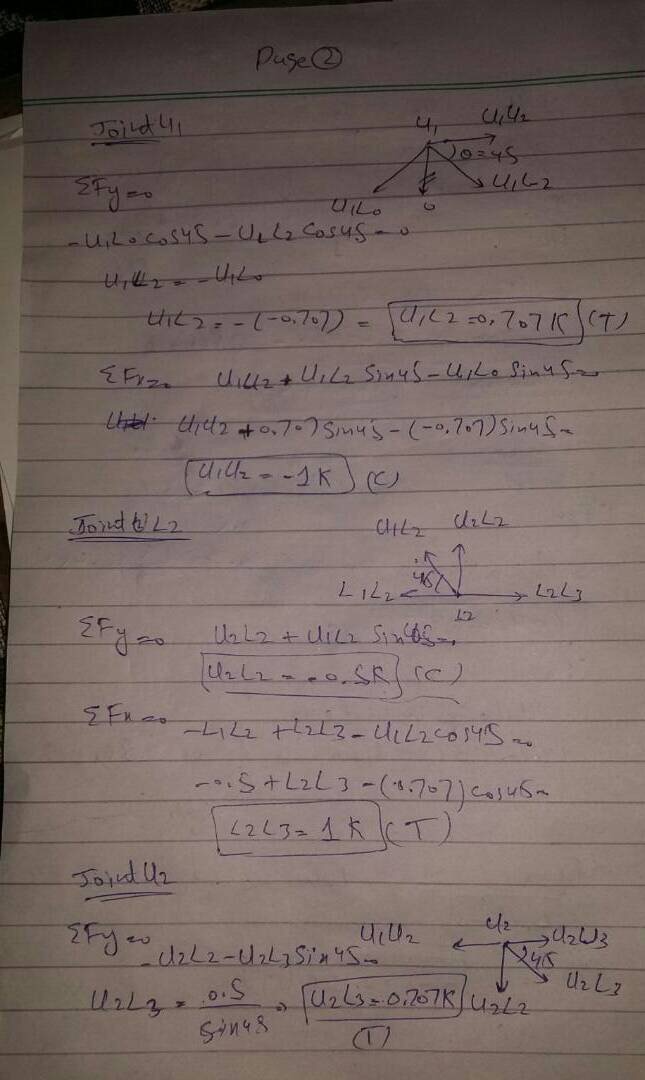 Page ②
Joint U₁
U₁ U₁U₂
θ=45
ΣFy=0
U₁L₀ 0 U₁L₂
-U₁L₀cos45-U₁L₂cos45=0
U₁L₂=-U₁L₀
U₁L₂=-(-0.707)= U₁L₂=0.707K (T)
ΣFx=0 U₁U₂+U₁L₂Sin45-U₁L₀Sin45=0
U₁U₂+0.707Sin45-(-0.707)Sin45=
U₁U₂=-1K (C)
Joint L2
U₁L2 U2L2
45
L₁L2 L2L3
L2
ΣFy=0 U2L2+U₁L2 Sin45=0
U2L2=-0.5K (C)
ΣFx=0
-L₁L2+L2L3-U₁L2cos45=0
-0.5+L2L3-(0.707)cos45=
L2L3=1K (T)
Joint U2
ΣFy=0 U₁U2 U2 U2U3
-U2L2-U2L3Sin45= 45
U2L3=0.5/sin45 = U2L3=0.707K U2L2 U2L3
(T)